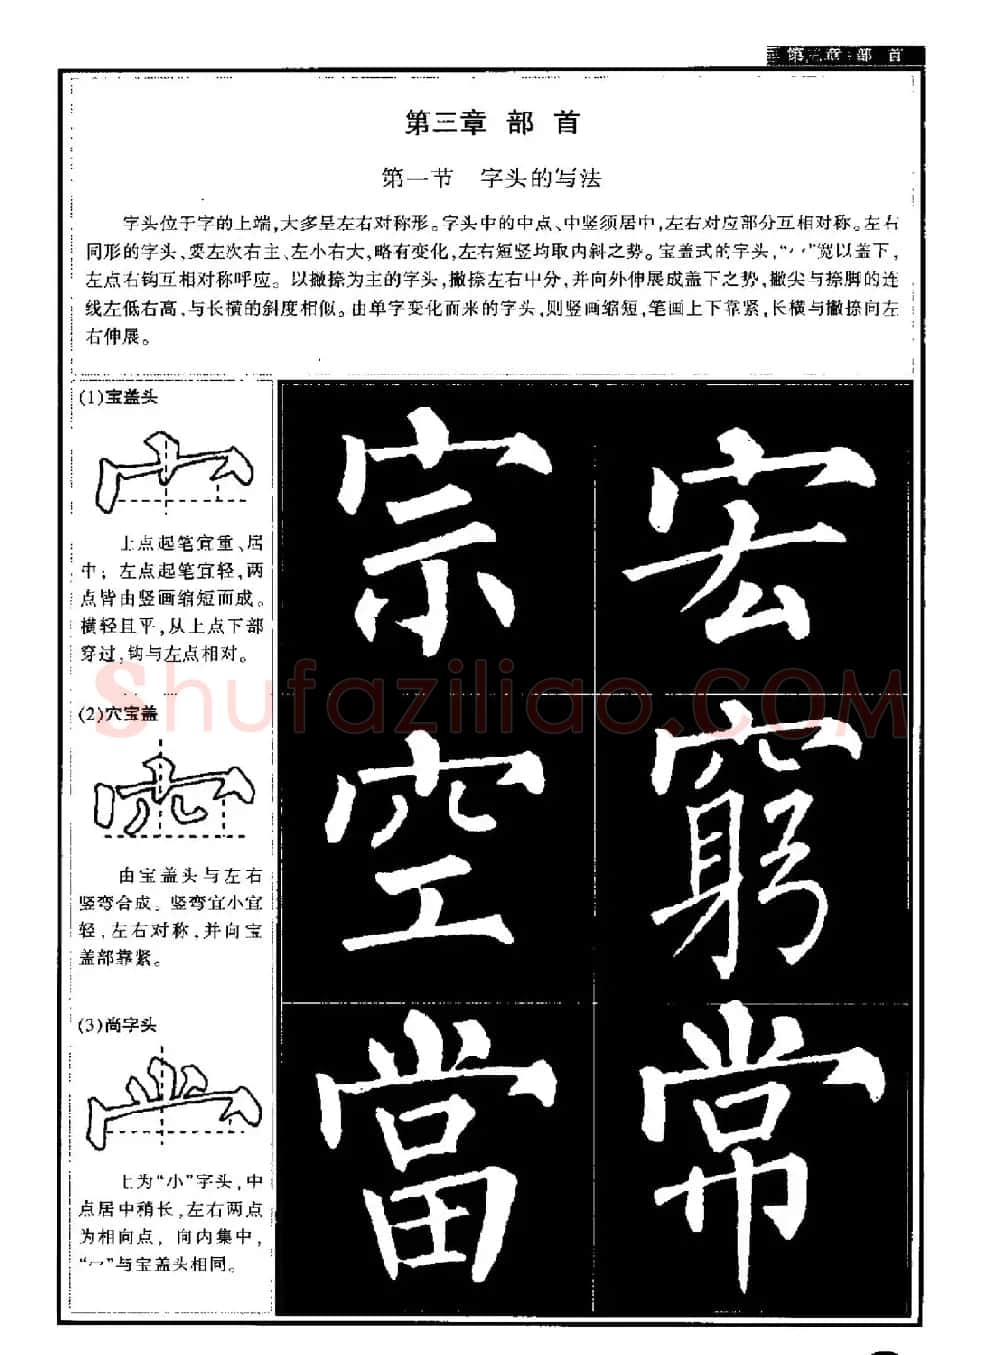 第三章 部 首
第三章 部 首
第一节 字头的写法
字头位于字的上端，大多呈左右对称形。字头中的中点、中竖须居中，左右对应部分互相对称。左右
同形的字头、要左次右主、左小右大，略有变化，左右短竖均取内斜之势。宝盖式的字头，“冖”宽以盖下，
左点右钩互相对称呼应。以撇捺为主的字头，撇捺左右中分，并向外伸展成盖下之势，撇尖与捺脚的连
线左低右高，与长横的斜度相似。由单字变化而来的字头，则竖画缩短，笔画上下靠紧，长横与撇捺向左
右伸展。
(1)宝盖头
上点起笔宜重、居
中；左点起笔宜轻，两
点皆由竖画缩短而成。
横轻且平，从上点下部
穿过，钩与左点相对。
(2)穴宝盖
由宝盖头与左右
竖弯合成。竖弯宜小宜
轻，左右对称，并向宝
盖部靠紧。
(3)尚字头
上为“小”字头，中
点居中稍长，左右两点
为相向点，向内集中，
“冖”与宝盖头相同。
宗 宏
空 窮
當 常
Shufaziliao.COM